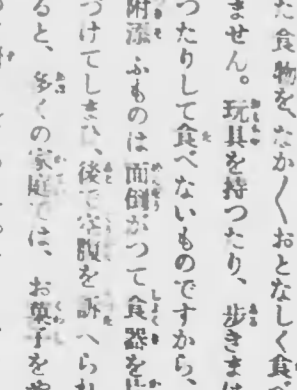 た食物を、なか〱おとなしく食べ
ません。玩具を持つたり、歩きま
つたりして食べないものですから、
附添ふものは面倒がつて食器を
づけてしまひ、後で空腹を訴へられ
ると、多くの家庭では、お菓子を